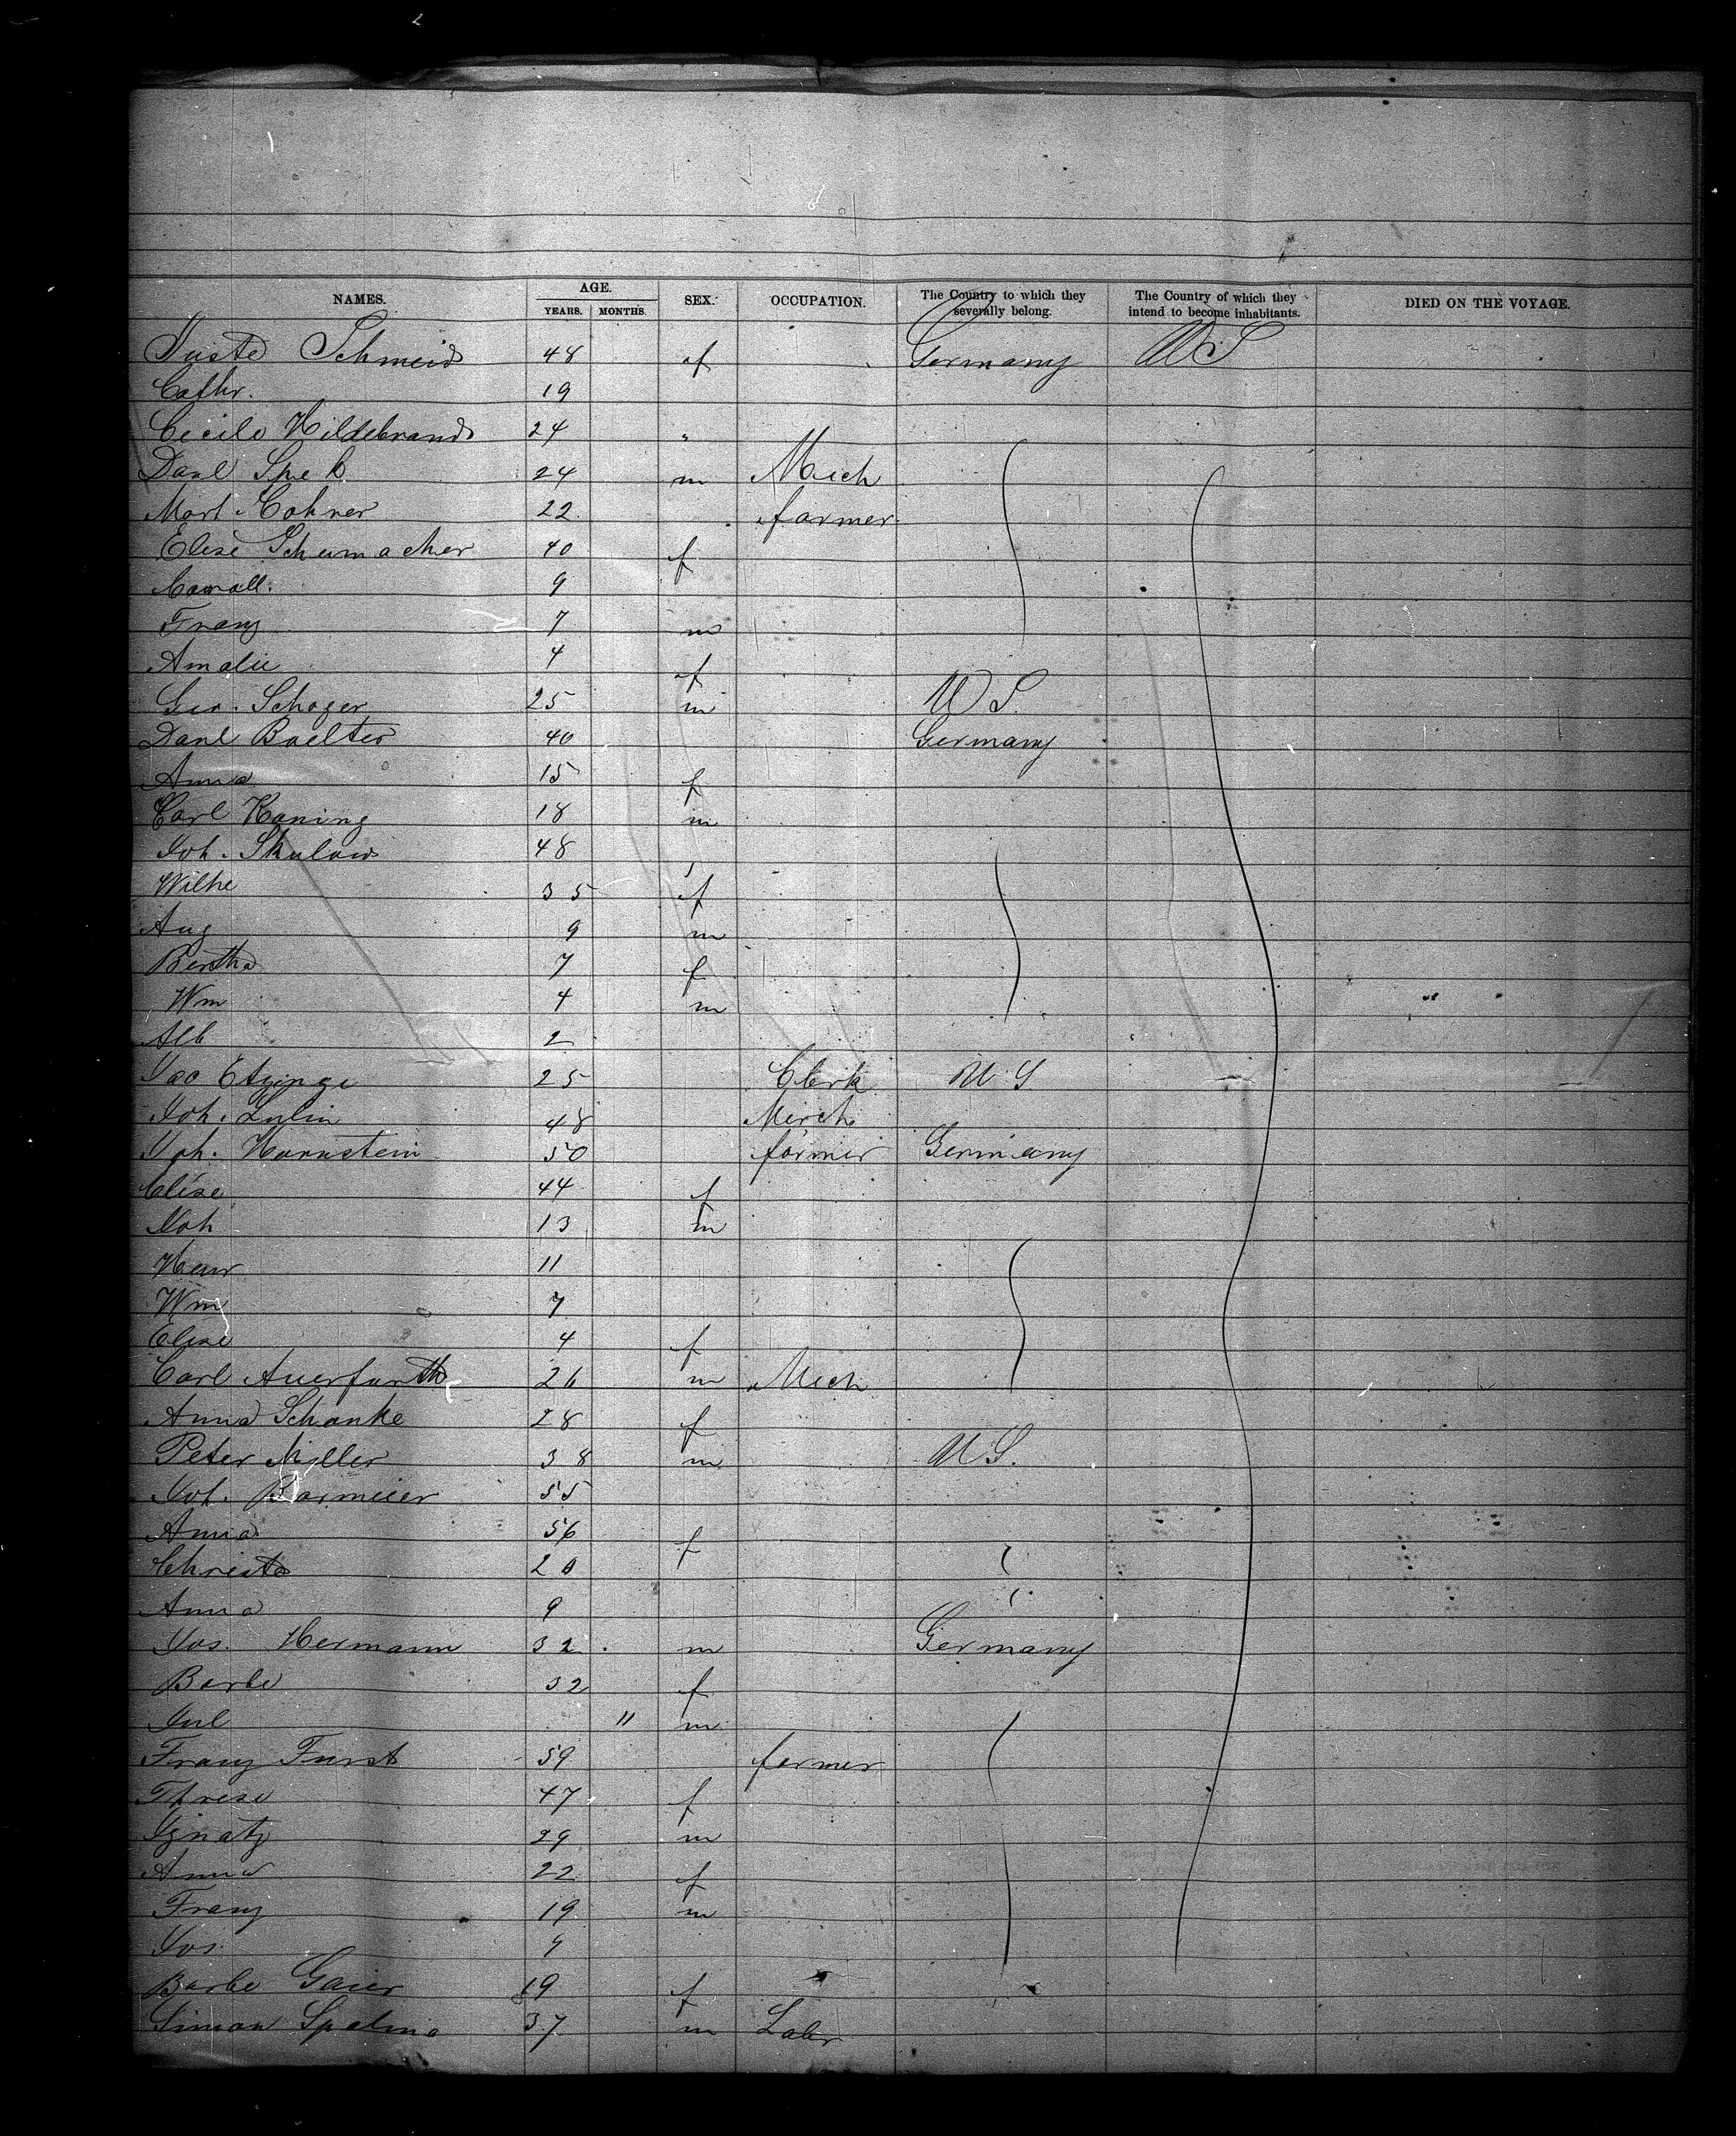 NAMES. AGE. YEARS. MONTHS. SEX. OCCUPATION. The Country to which they severally belong. The Country of which they intend to become inhabitants. DIED ON THE VOYAGE.
Juste Schmeid 48 f Germany US
Cathr. 19
Cecile Hildebrand 24 "
Danl Spek 24 m Mech
Mart. Cohner 22 farmer
Elise Schumacher 40 f
9
Franz 7 m
Amalie 4 f
Geo. Schoger 25 m U S.
Danl Boelter 40 Germany
Anna 15 f
Carl Koning 18 m
Joh. Skulow 48
Wilhe 35 f
Aug 9 m
Bertha 7 f
Wm 4 m
Alb 2
Jac 25 Clerk U S
Joh. Lulin 48 Merch
Joh. Hornstein 50 farmer Germany
Elise 44 f
Joh 13 m
Henr 11
Wm 7
Elise 4 f
Carl Auerfurth 26 m Mech
Anna Schanke 28 f
Peter Miller 38 m U S.
Joh. Barmeier 55
Anna 56 f
Christ 20
Anna 9
Jos. Hermann 32 m Germany
Barbe 32 f
Jul 11 m
Franz Furst 59 farmer
Threse 47 f
Ignatz 29 m
Anna 22 f
Franz 19 m
Jos. 9
Barbe Gaier 19 f
Simon 37 m Labr